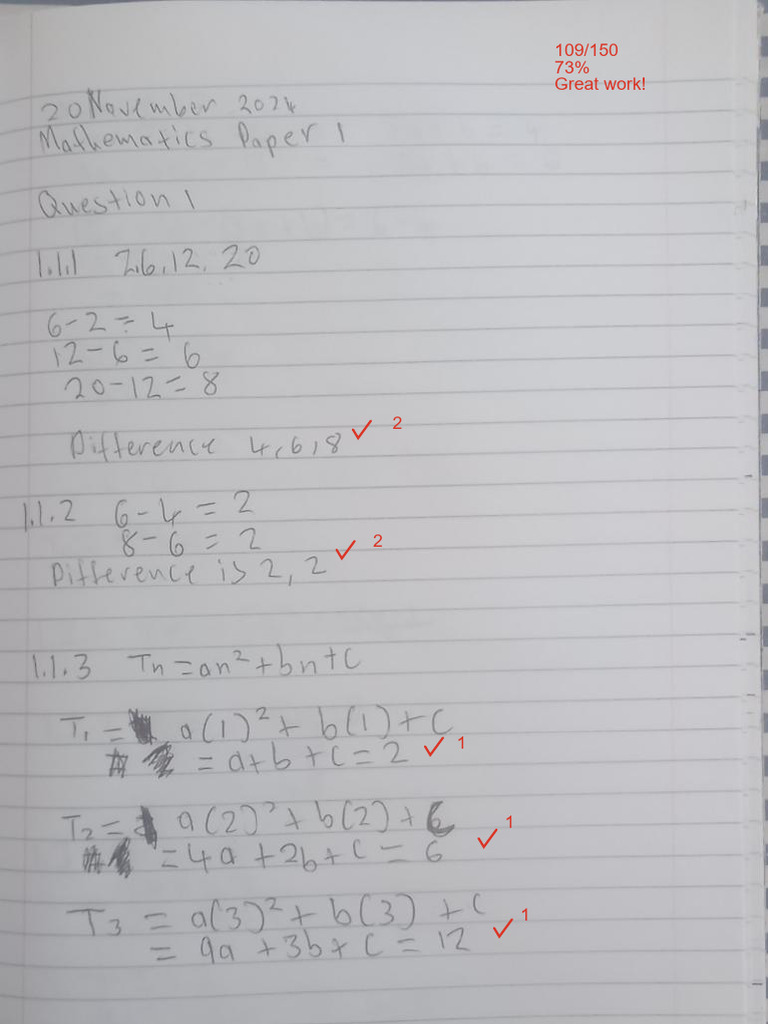 109/150
73%
Great work!
20 November 2024
Mathematics Paper 1
Question 1
1.1.1 2,6,12, 20
6-2 = 4
12-6 = 6
20-12 = 8
Difference 4,6,8 ✓ 2
1.1.2 6-4 = 2
8-6 = 2
Difference is 2, 2 ✓ 2
1.1.3 Tn = an² + bn + c
T₁ = a(1)² + b(1) + c
= a+b+c = 2 ✓ 1
T₂ = a(2)² + b(2) + c
= 4a + 2b + c = 6 ✓ 1
T₃ = a(3)² + b(3) + c
= 9a + 3b + c = 12 ✓ 1